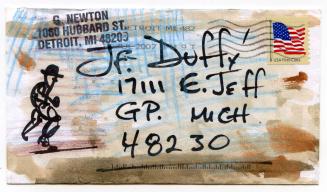 G. NEWTON
1060 HUBBARD ST.
DETROIT, MI 48209
DETROIT MI 482
J.F. DUFFY
17111 E. JEFF
G.P. MICH
48230